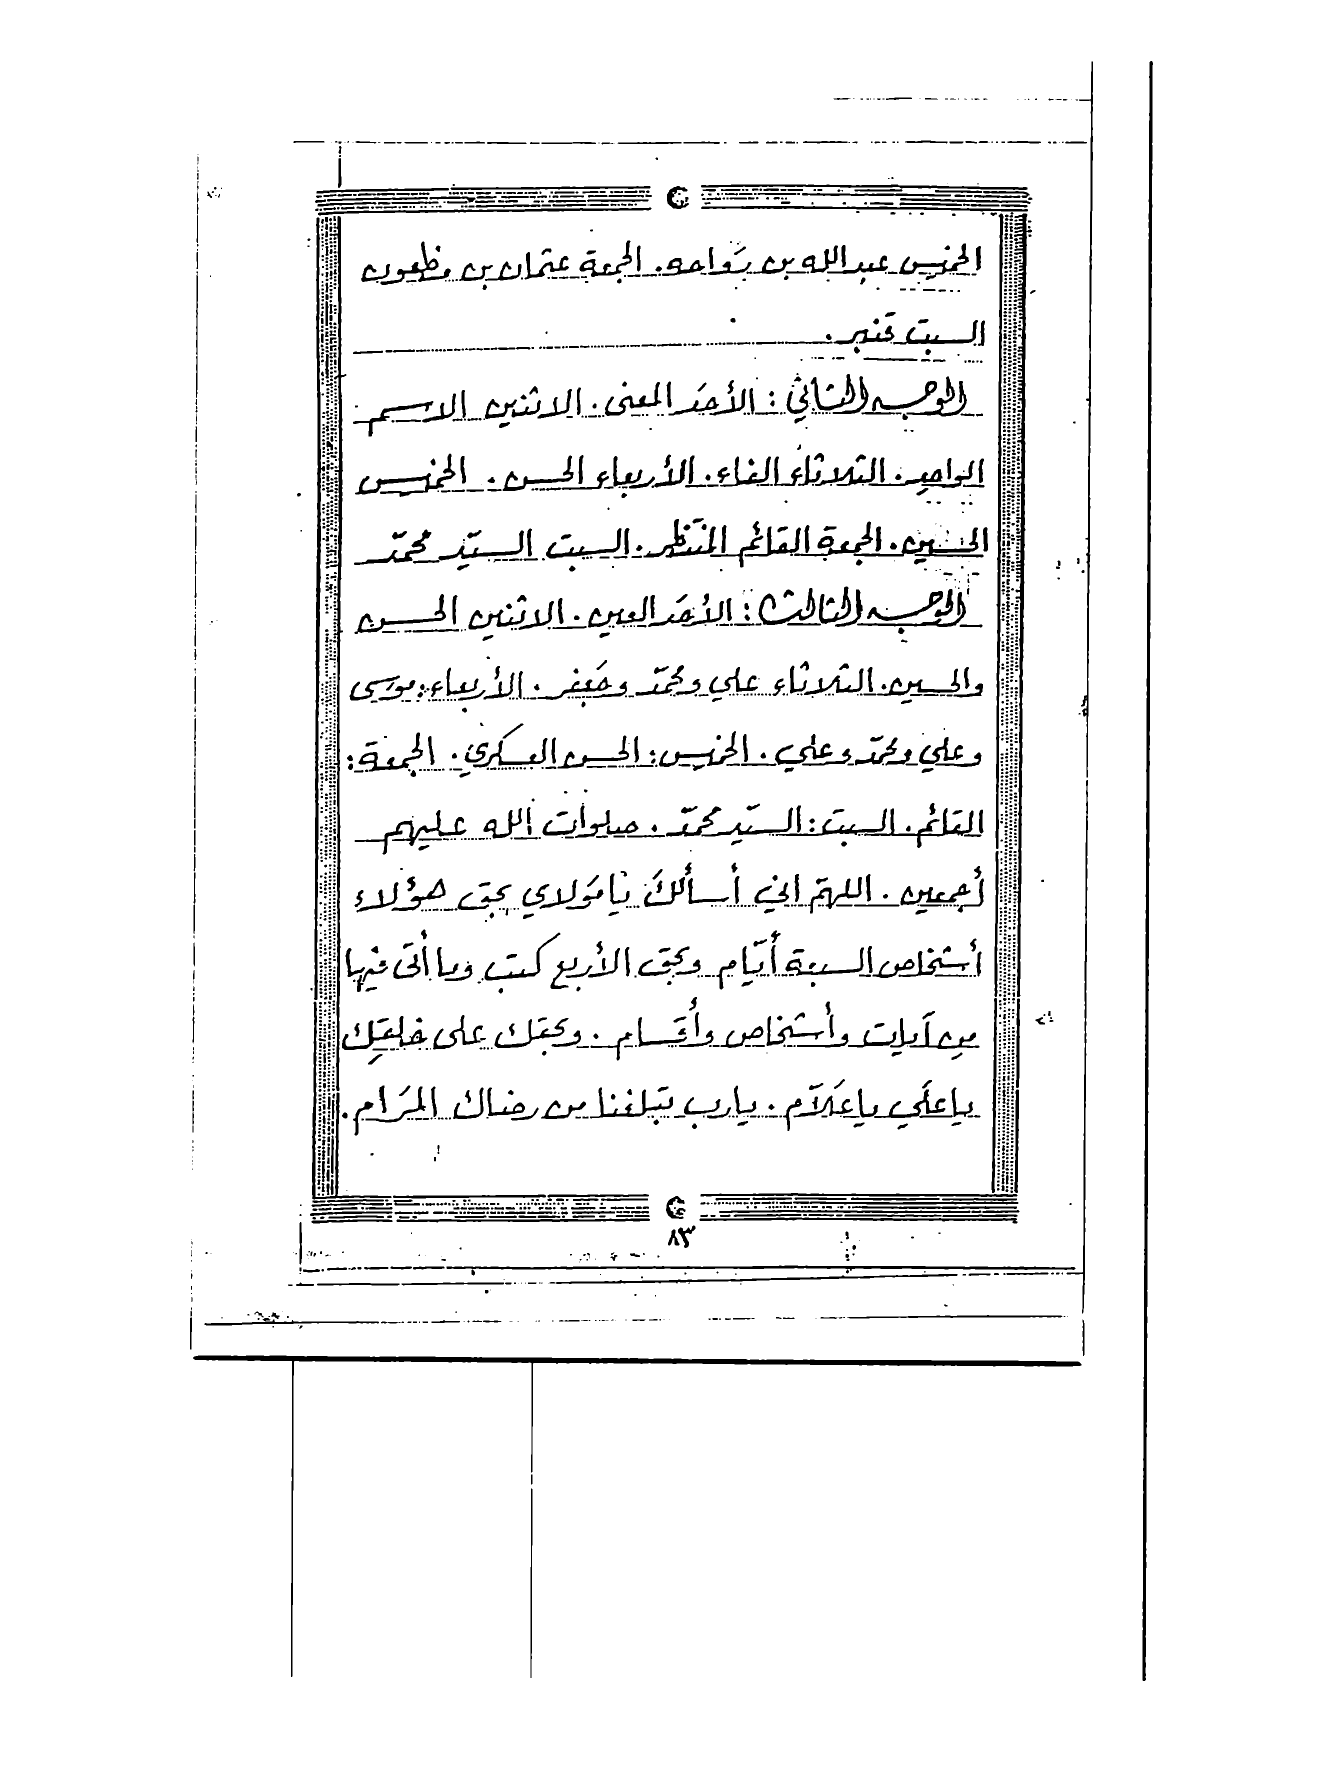 الخميس عبدالله بن رَواحه. الجمعة عثمان بن مظعون
السبت قنبر.
الوجه الثاني: الأحَد المعنى. الاثنين الاسم
الواحد. الثلاثاء الفاء. الأربعاء الحسن. الخميس
الحسين. الجمعة القائم المنتَظر. السبت السيّد محمّد
الوجه الثالث: الأحَد العين. الاثنين الحسن
والحسين. الثلاثاء علي ومحمّد وجَعفر. الأربعاء: موسى
وعلي ومحمّد وعلي. الخميس: الحسن العسكري. الجمعة:
القائم. السبت: السيّد محمّد. صلوات الله عليهم
أجمعين. اللهمّ اني أسألكَ يَا مَولاي بحق هؤلاء
أشخاص السبعة أيّام وبحق الأربع كتب وما أتى فيها
من آيات وأشخاص وأقسام. وبحقك على خلقِك
ياعلَي ياعَلاّم. يارب تبلغنا من رضاك المَرام.
٨٣